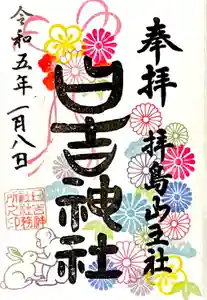 奉拝
拝島山王社
日吉神社
令和五年一月八日